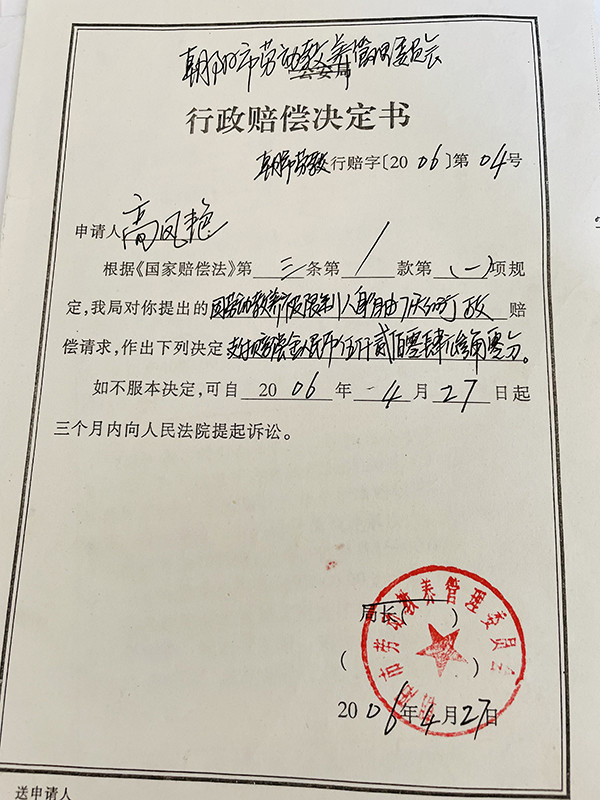 朝阳市劳动教养管理委员会
公安局
行政赔偿决定书
朝劳教行赔字〔2006〕第04号
申请人高凤艳
根据《国家赔偿法》第三条第1款第(一)项规
定,我局对你提出的因劳动教养被限制人身自由 赔
偿请求,作出下列决定支付赔偿金人民币伍仟贰佰零肆元 角零分。
如不服本决定,可自2006年4月27日起
三个月内向人民法院提起诉讼。
局长( )
( )
朝阳市劳动教养管理委员会
2006年4月27日
送申请人